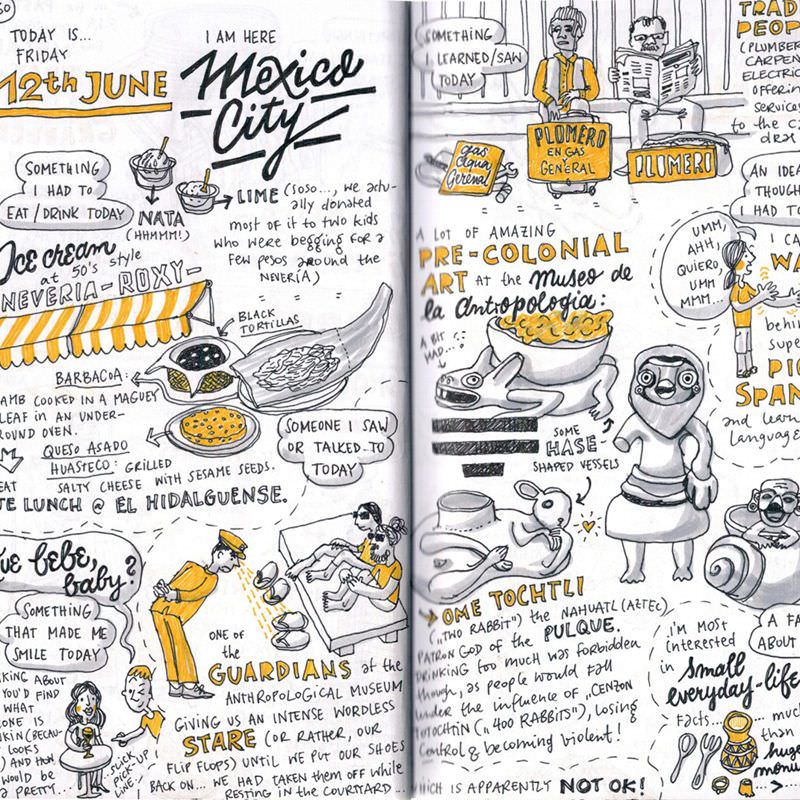 TODAY IS...
FRIDAY
12th JUNE
I AM HERE
Mexico
City
SOMETHING
I HAD TO
EAT / DRINK TODAY
NATA
(HHMMM!)
LIME (SOSO..., WE actu-
ally donated
most of it to two kids
who were begging for a
few pesos around the
NEVERÍA)
Ice cream
at 50's style
NEVERIA-ROXY-
BLACK
TORTILLAS
BARBACOA:
LAMB COOKED IN A MAGUEY
LEAF IN AN UNDER-
ROUND OVEN.
QUESO ASADO
HUASTECO: GRILLED
SALTY CHEESE WITH SESAME SEEDS.
LUNCH @ EL HIDALGUENSE.
SOMEONE I SAW
OR TALKED TO
TODAY
bebe,
baby?
SOMETHING
THAT MADE ME
SMILE TODAY
KING ABOUT
YOU'D FIND
WHAT
ONE IS
KIN (BECAU-
LOOKS
) AND HOW
WOULD BE
A PRETTY...
...SLICK
PICK-UP
LINE...
ONE OF
the
GUARDIANS at the
ANTHROPOLOGICAL MUSEUM
GIVING US AN INTENSE WORDLESS
STARE (OR RATHER, OUR
FLIP FLOPS) UNTIL WE PUT OUR SHOES
BACK ON... WE HAD TAKEN THEM OFF while
RESTING IN the COURTYARD...
SOMETHING
I LEARNED/SAW
TODAY
gas
agua
general
PLOMERO
EN GAS
Y
GENERAL
PLOMERO
TRAD
PEOP
(PLUMBER
CARPEN
ELECTRIC
offering
services
to the ci
A LOT OF AMAZING
PRE-COLONIAL
ART At the Museo de
la Antropologia:
A BIT
MAD...
SOME
HASE-
SHAPED VESSELS
OME TOCHTLI
("TWO RABBIT") the NAHUATL (AZTEC)
PATRON GOD of the PULQUE.
DRINKING too much was forbidden
though, as people would fall
under the influence of "CENZON
TOTOCHTIN ("400 RABBITS"), losing
control & becoming violent!
WHICH IS APPARENTLY NOT OK!
AN IDEA
THOUGH
I HAD TO
UMM,
AHH,
QUIERO,
UMM
MMM...
I CA
WA
behin
supe
PIC
SPAN
and learn
language
A FA
ABOUT
I'M MOST
interested
in
small
everyday-life
FACTS... much
than
huge
monu